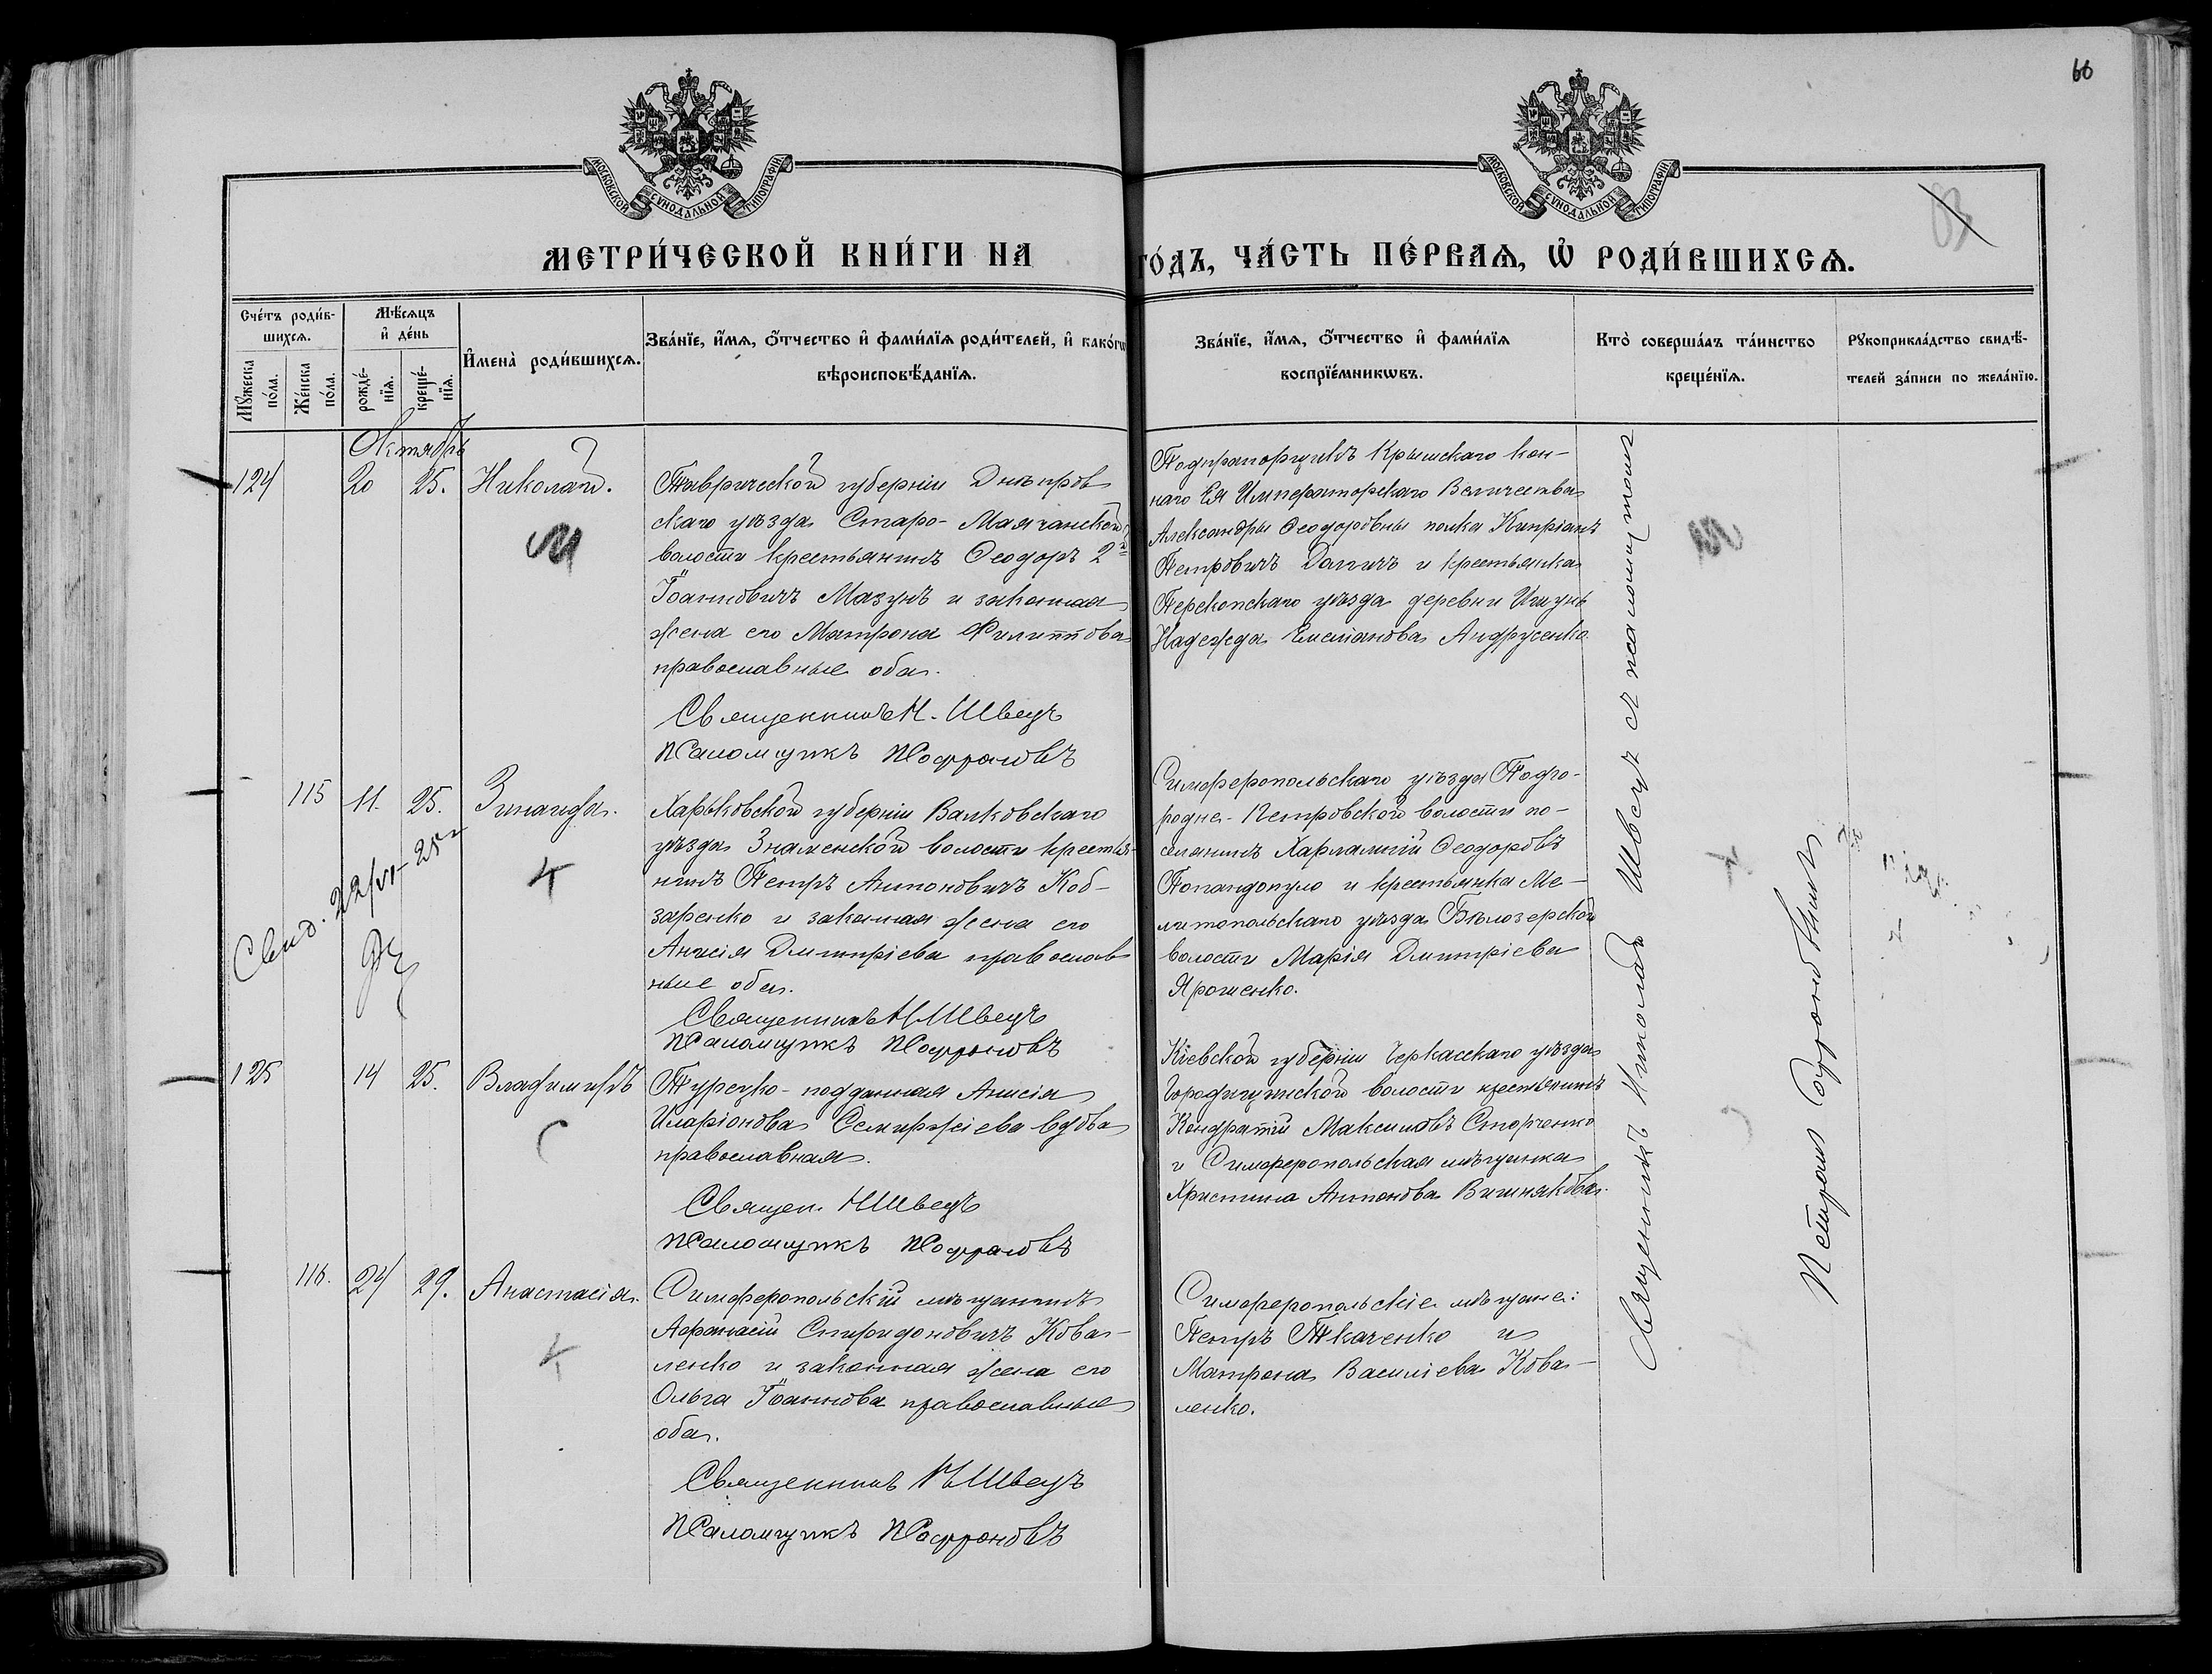 66
83
МОСКОВСКОЙ СѴНОДАЛЬНОЙ ТИПОГРАФІИ
МОСКОВСКОЙ СѴНОДАЛЬНОЙ ТИПОГРАФІИ
МЕТРИ́ЧЕСКОЙ КНИ́ГИ НА ГО́ДЪ, ЧА́СТЬ ПЕ́РВАѦ, Ѡ҆ РОДИ́ВШИХСѦ.
Сче́тъ роди́в-
шихсѧ.
Мꙋ́жеска по́ла.
Же́нска по́ла.
Мѣ́сѧцъ
и҆ де́нь
рожде́-
нїѧ.
креще́-
нїѧ.
И҆мена̀ роди́вшихсѧ.
Зва́нїе, и҆́мѧ, ѻ҆́тчество и҆ фами́лїѧ роди́телей, и҆ како́гѡ
вѣроисповѣ́данїѧ.
Зва́нїе, и҆́мѧ, ѻ҆́тчество и҆ фами́лїѧ
воспрїе́мникѡвъ.
Кто̀ соверша́лъ та́инство
креще́нїѧ.
Рꙋкоприкла́дство свидѣ́-
телей за́писи по жела́нїю.
Октябрь
124 20 25. Николай.
М
Таврической губерніи Днѣпров
скаго уѣзда Старо-Маячанской
волости крестьянинъ Ѳеодоръ 2й
Іоанновичъ Мазунъ и законная
жена его Матрона Филиппова
православные оба.
Священникъ Н. Швецъ
Псаломщикъ П Софроновъ
Подпрапорщикъ Крымскаго кон-
наго Ея Императорскаго Величества
Александры Ѳеодоровны полка Кипріанъ
Петровичъ и крестьянка
Перекопскаго уѣзда деревни
Надежда Емеліанова Андрусенко
115 11. 25. Зинаида.
Свид. 22/VI-25 г
Харьковской губерніи Валковскаго
уѣзда Знаменской волости крестья-
нинъ Петръ Антоновичъ Коб-
заренко и законная жена его
Анисія Димитріева православ
ные оба.
Священникъ Н Швецъ
Псаломщикъ П Софроновъ
Симферопольскаго уѣзда Подго-
родне-Петровской волости по-
селянинъ Харлампій Ѳеодоровъ
Попандопуло и крестьянка Ме-
литопольскаго уѣзда Бѣлозерской
волости Марія Димитріева
Ярошенко.
125 14 25. Владимиръ
С
Турецко-подданная Анисія
Иларіонова вдова
православная.
Священ. Н Швецъ
Псаломщикъ П Софроновъ
Кіевской губерніи Черкасскаго уѣзда
Городищенской волости крестьянинъ
Кондратій Максимовъ Сторченко
и Симферопольская мѣщанка
Христина Антонова Вишнякова.
116. 24 29. Анастасія.
Симферопольскій мѣщанинъ
Афанасій Спиридоновичъ Кова-
ленко и законная жена его
Ольга Іоаннова православные
оба.
Священникъ Н Швецъ
Псаломщикъ П Софроновъ
Симферопольскіе мѣщане:
Петръ Ткаченко и
Матрона Василіева Кова-
ленко.
Священникъ Николай Швецъ и псаломщикъ
Петръ Софроновъ